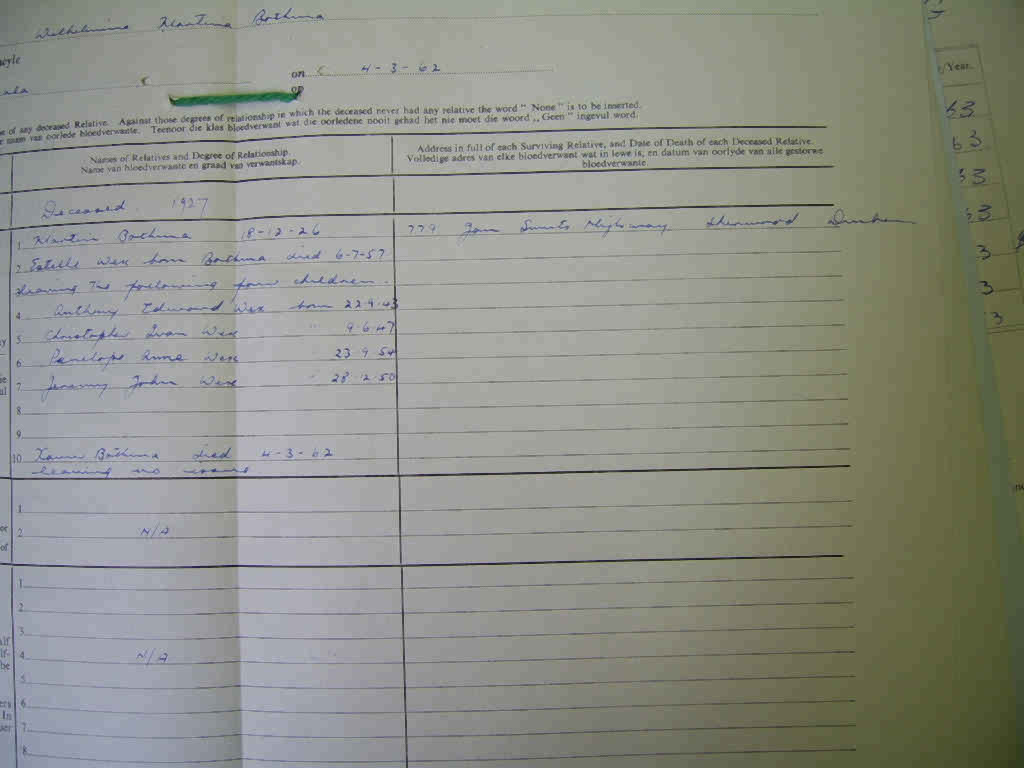 Wilhelmina Martina Bothma
on 4-3-62
op
e of any deceased Relative. Against those degrees of relationship in which the deceased never had any relative the word " None " is to be inserted.
e naam van oorlede bloedverwante. Teenoor die klas bloedverwant wat die oorledene nooit gehad het nie moet die woord „ Geen " ingevul word.
Names of Relatives and Degree of Relationship.
Name van bloedverwante en graad van verwantskap.
Address in full of each Surviving Relative, and Date of Death of each Deceased Relative.
Volledige adres van elke bloedverwant wat in lewe is, en datum van oorlyde van alle gestorwe
bloedverwante
Deceased 1927
1 Martin Bothma 18-12-26 779 Jan Smuts Highway Sherwood Durban
2 Estelle Wex born Bothma died 6-7-57
leaving the following four children.
4 Anthony Edmund Wex born 22.9.43
5 Christopher Ivan Wex " 9.6.47
6 Penelope Anne Wex 23.9.54
7 Jeremy John Wex " 28.2.50
8
9
10 Bothma died 4-3-62
leaving no issue
1
2 N/A
1
2
3
4 N/A
5
6
7
8
/Year.
63
63
63
63
3
3
3